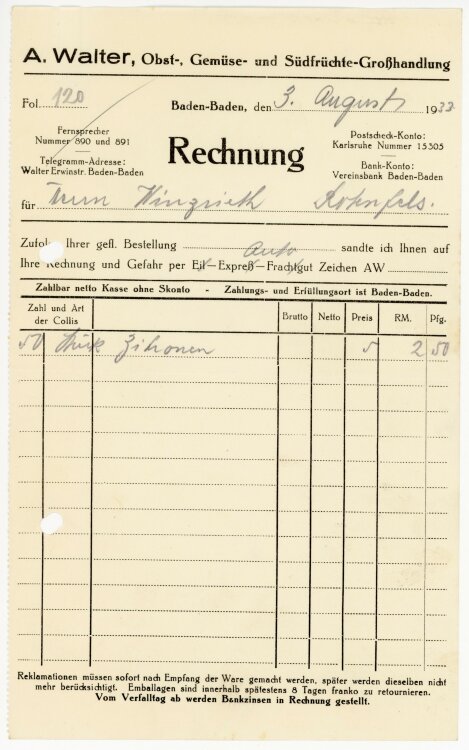 A. Walter, Obst-, Gemüse- und Südfrüchte-Großhandlung
Fol. 120
Baden-Baden, den 3. August 1933
Fernsprecher
Nummer 890 und 891
Telegramm-Adresse:
Walter Erwinstr. Baden-Baden
Rechnung
Postscheck-Konto:
Karlsruhe Nummer 15305
Bank-Konto:
Vereinsbank Baden-Baden
für Herrn
Zufolge Ihrer gefl. Bestellung Auto sandte ich Ihnen auf
Ihre Rechnung und Gefahr per Eil-Expreß-Frachtgut Zeichen AW
Zahlbar netto Kasse ohne Skonto - Zahlungs- und Erfüllungsort ist Baden-Baden.
Zahl und Art der Collis Brutto Netto Preis RM. Pfg.
50 Stück Zitronen 5 2 50
Reklamationen müssen sofort nach Empfang der Ware gemacht werden, später werden dieselben nicht
mehr berücksichtigt. Emballagen sind innerhalb spätestens 8 Tagen franko zu retournieren.
Vom Verfalltag ab werden Bankzinsen in Rechnung gestellt.